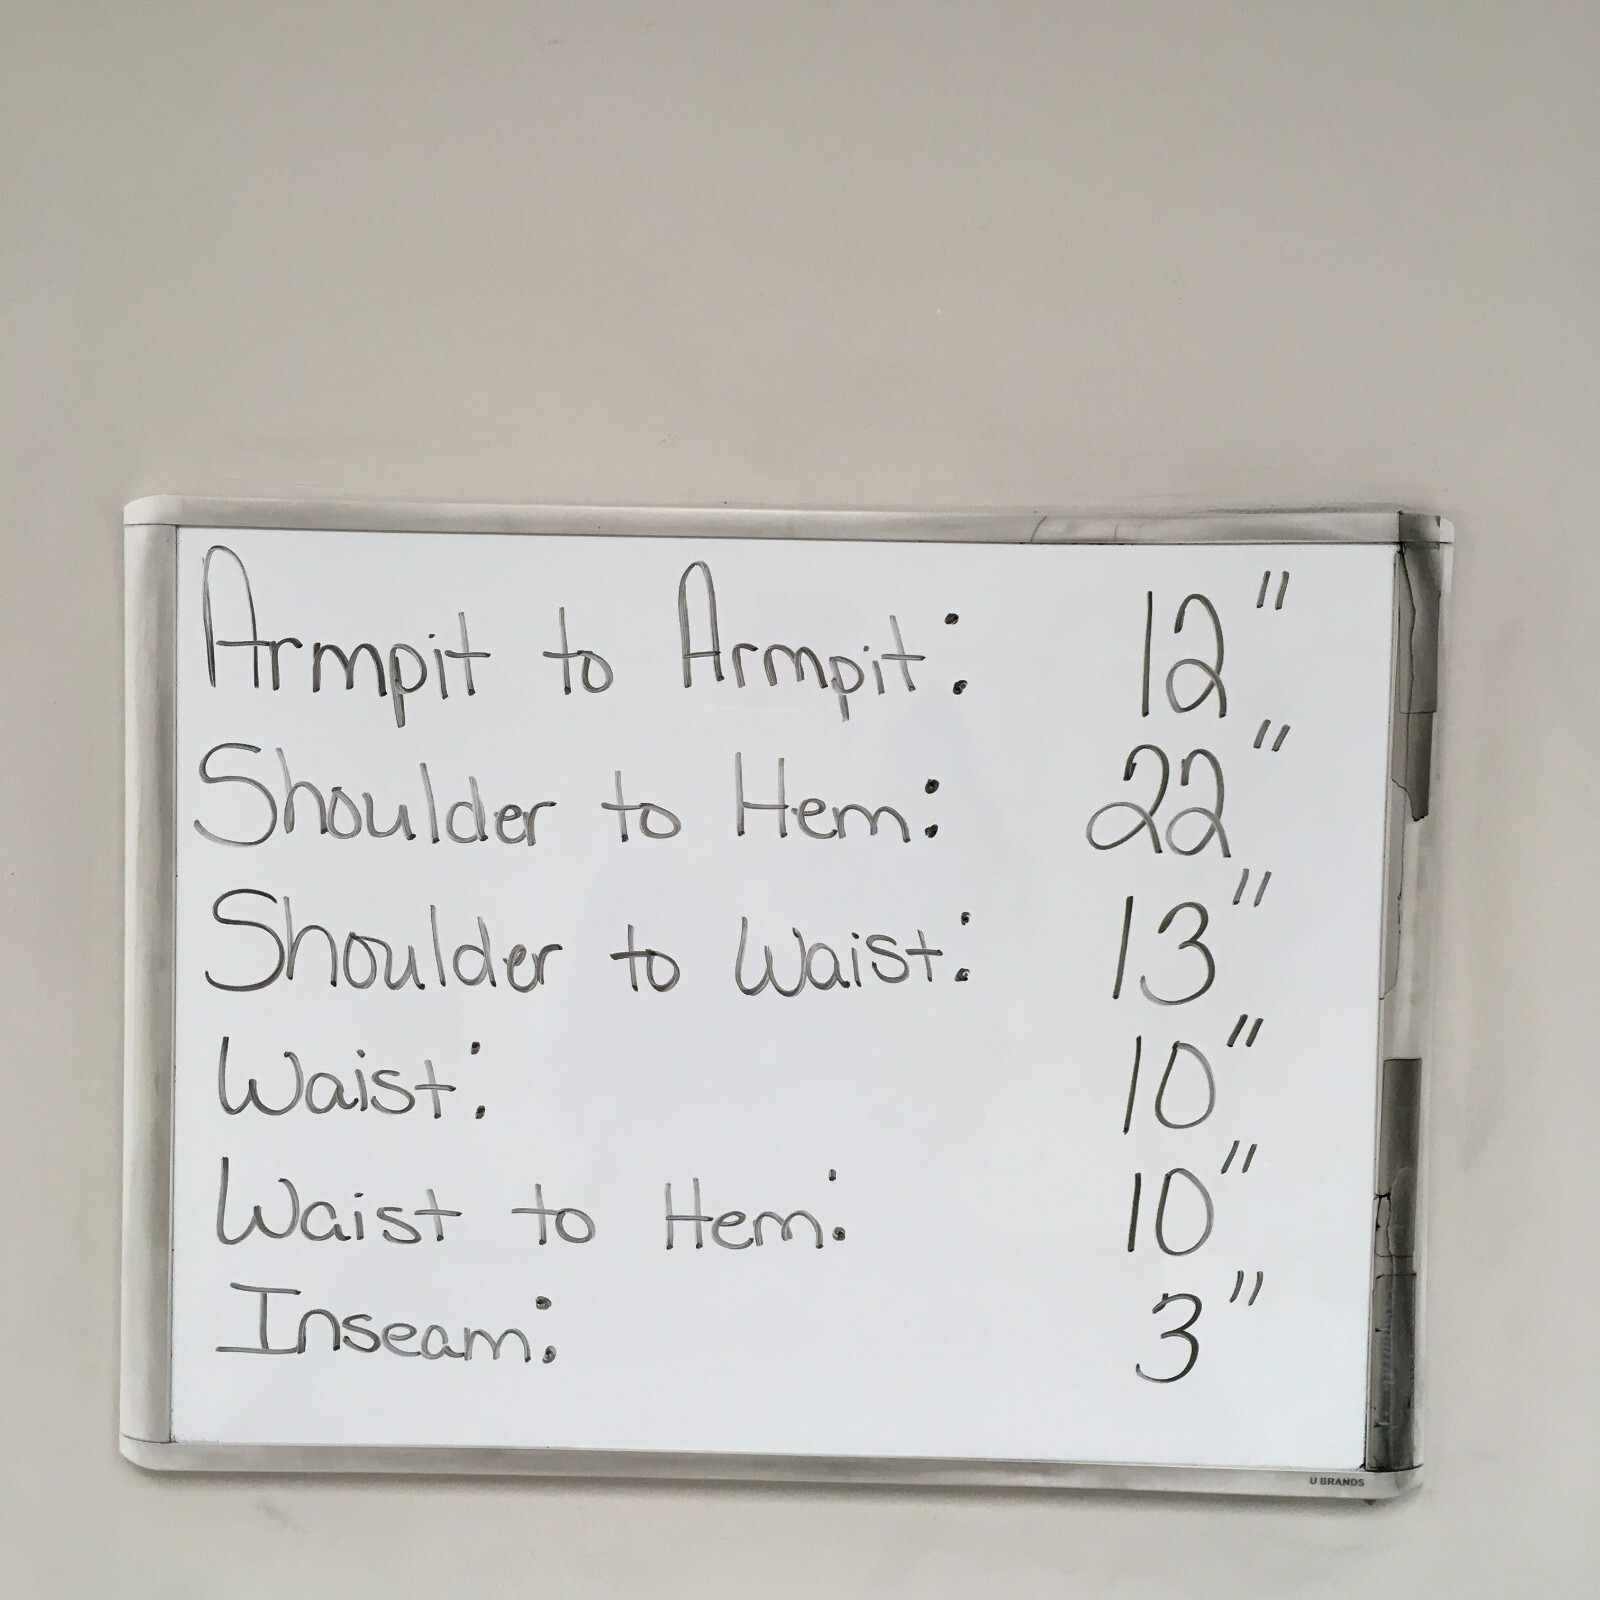 Armpit to Armpit: 12"
Shoulder to Hem: 22"
Shoulder to Waist: 13"
Waist: 10"
Waist to Hem: 10"
Inseam: 3"
U BRANDS